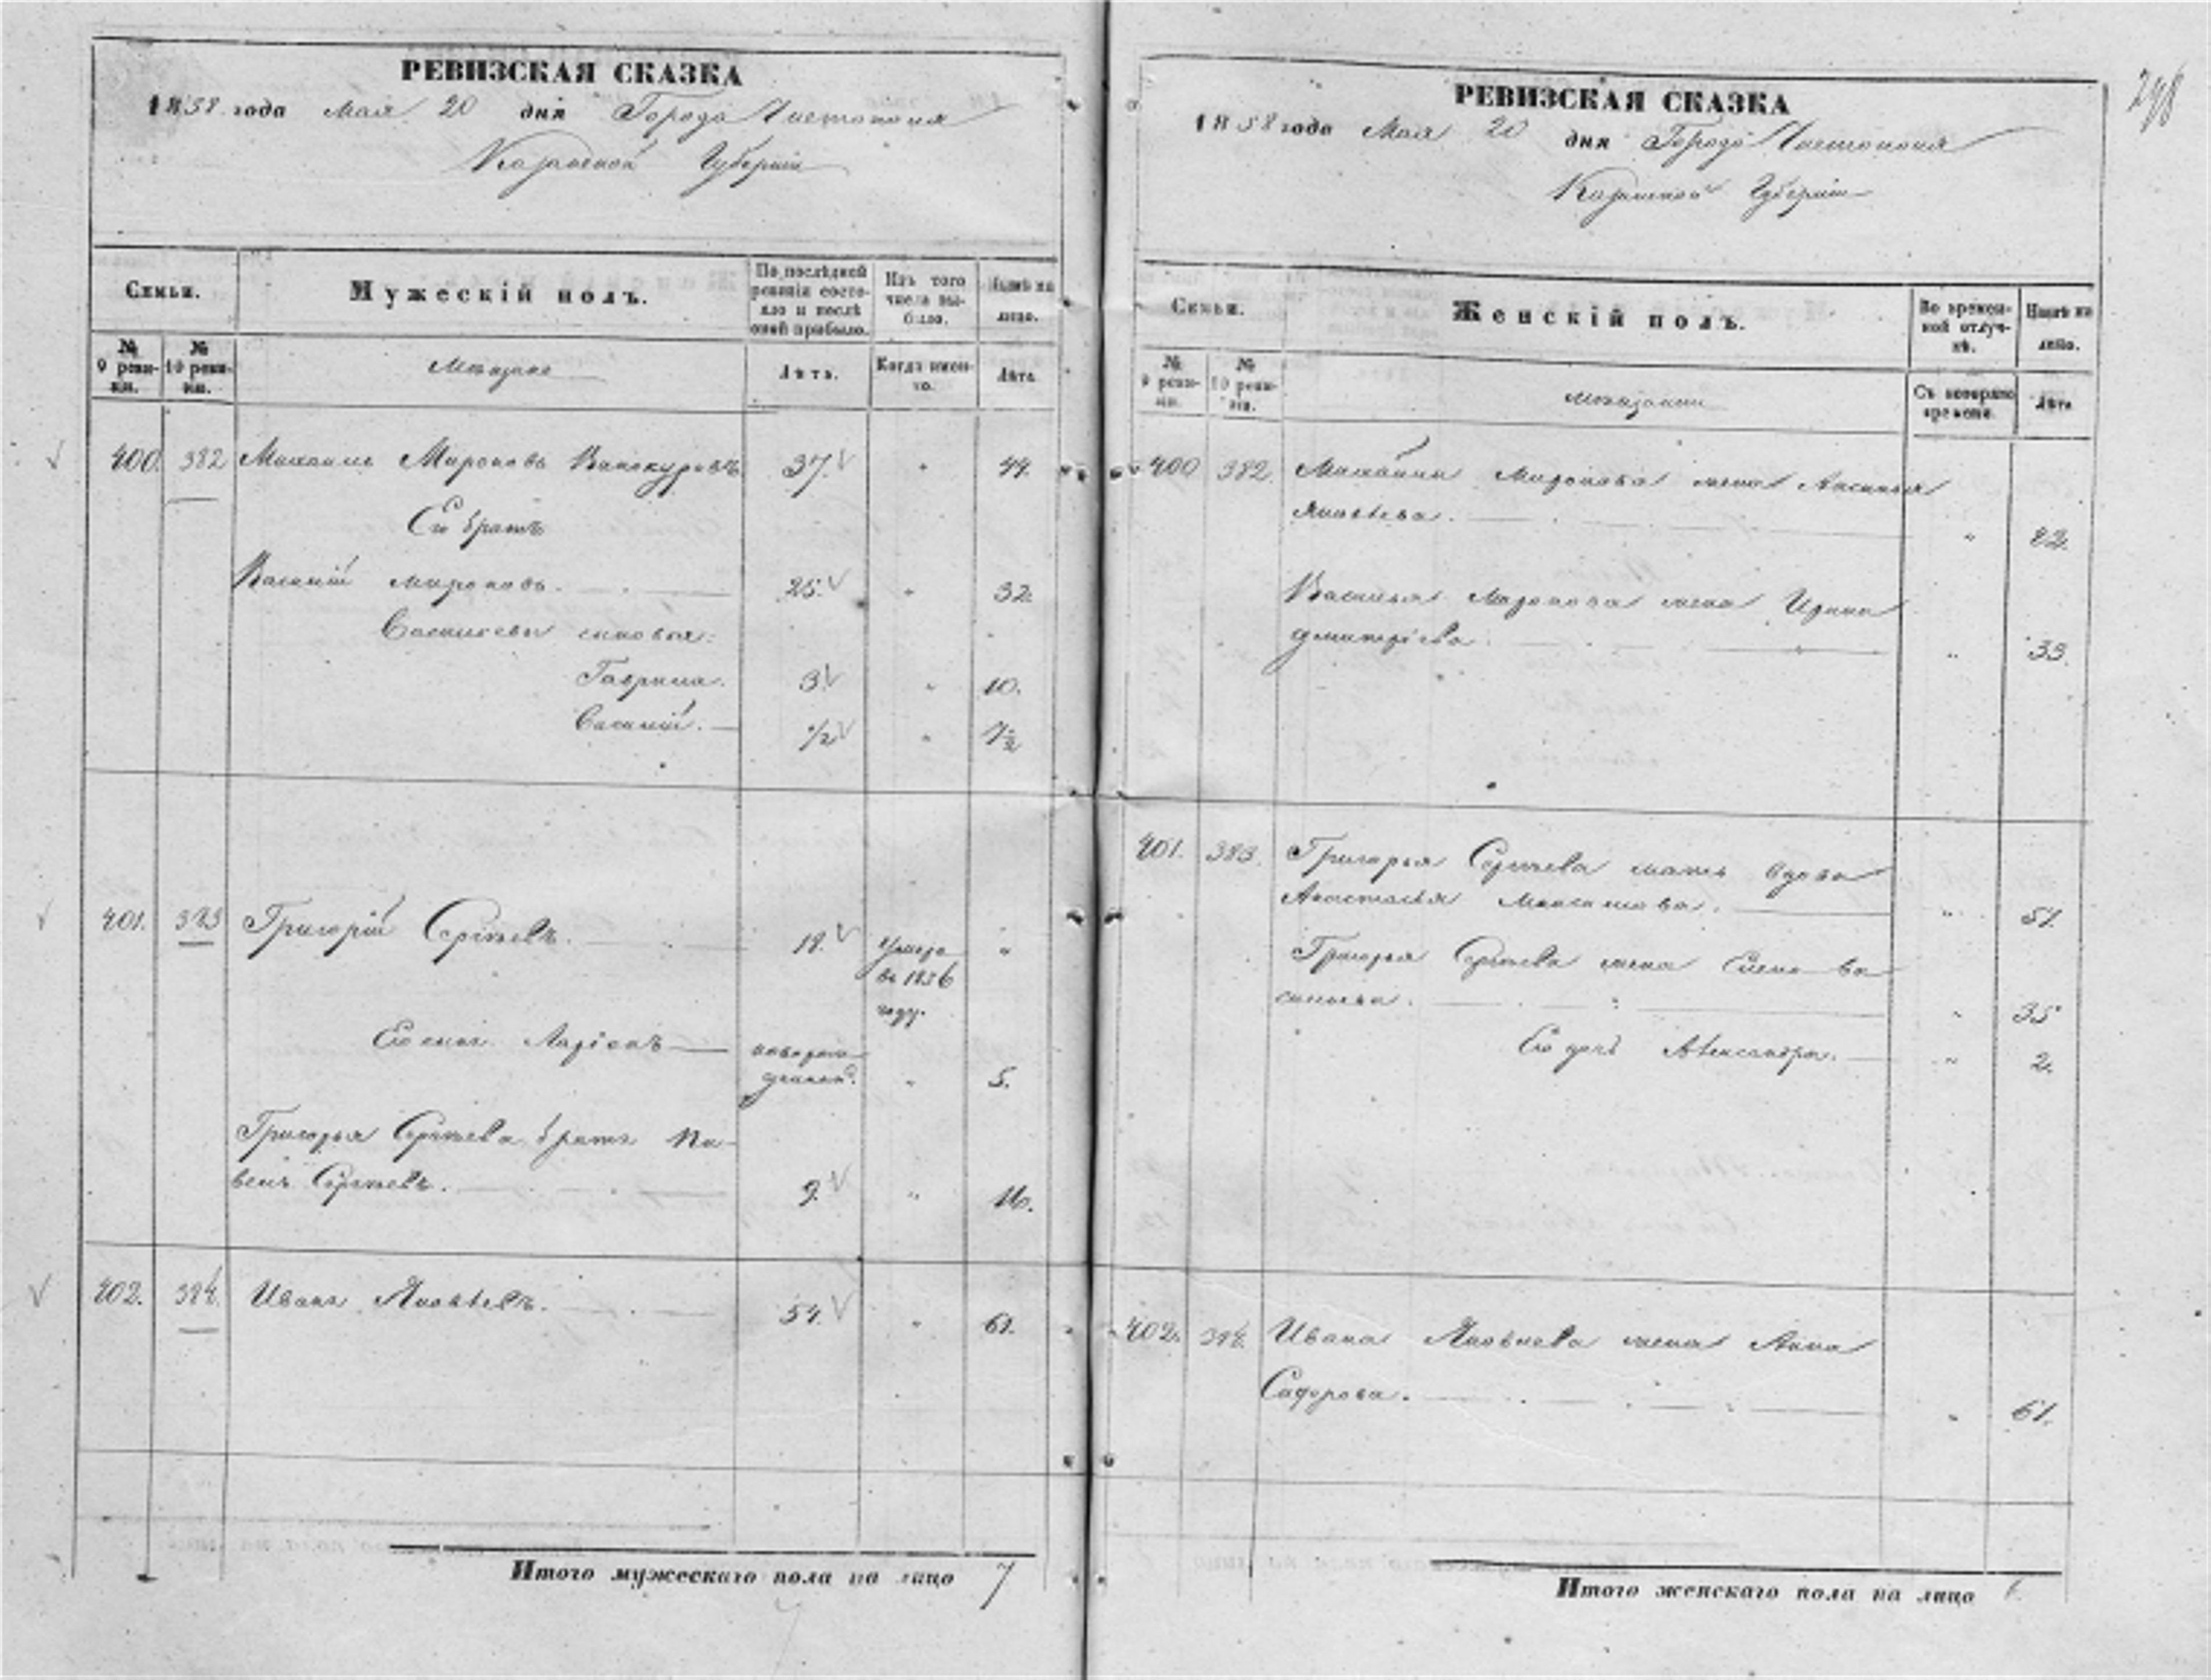 РЕВИЗСКАЯ СКАЗКА
1858 года Мая 20 дня Города Чистополя
Казанской Губернии
Семьи.
Мужескій полъ.
По послѣдней
ревизіи состо-
яло и послѣ
оной прибыло.
Изъ того
числа вы-
было.
Нынѣ на
лицо.
№
9 реви-
зіи.
№
10 реви-
зіи.
Мещане
Лѣта.
Когда имен-
но.
Лѣта
400. 382 Михаилъ Мироновъ Винокуровъ 37. " 44.
Его братъ
Василій Мироновъ. 25. " 32.
Васильевы сыновья:
Гаврила. 3. " 10.
Василій. 1/2 " 7 1/2
401. 383 Григорій Сергѣевъ. 18. Умеръ "
въ 1856
году.
Его сынъ Ларіонъ новорож-
денный. " 5.
Григорья Сергѣева братъ Па-
велъ Сергѣевъ. 9. " 16.
402. 384. Иванъ Яковлевъ. 54. " 61.
Итого мужескаго пола на лицо 7
298
РЕВИЗСКАЯ СКАЗКА
1858 года Мая 20 дня Города Чистополя
Казанской Губерніи
Семьи.
Женскій полъ.
Во времен-
ной отлуч-
кѣ.
Нынѣ на
лицо.
№
9 реви-
зіи.
№
10 реви-
зіи.
Мещанки
Съ котораго
времени.
Лѣта
400 382. Михайлы Миронова жена Аксинья
Яковлева. " 42.
Василья Миронова жена Ирина
Дмитріева. " 33.
401. 383. Григорья Сергѣева мать вдова
Анастасья Максимова. " 51.
Григорья Сергѣева жена Елена Ва-
сильева. " 35
Его дочь Александра. " 2.
402. 384. Ивана Яковлева жена Анна
Сидорова. " 61.
Итого женскаго пола на лицо 6